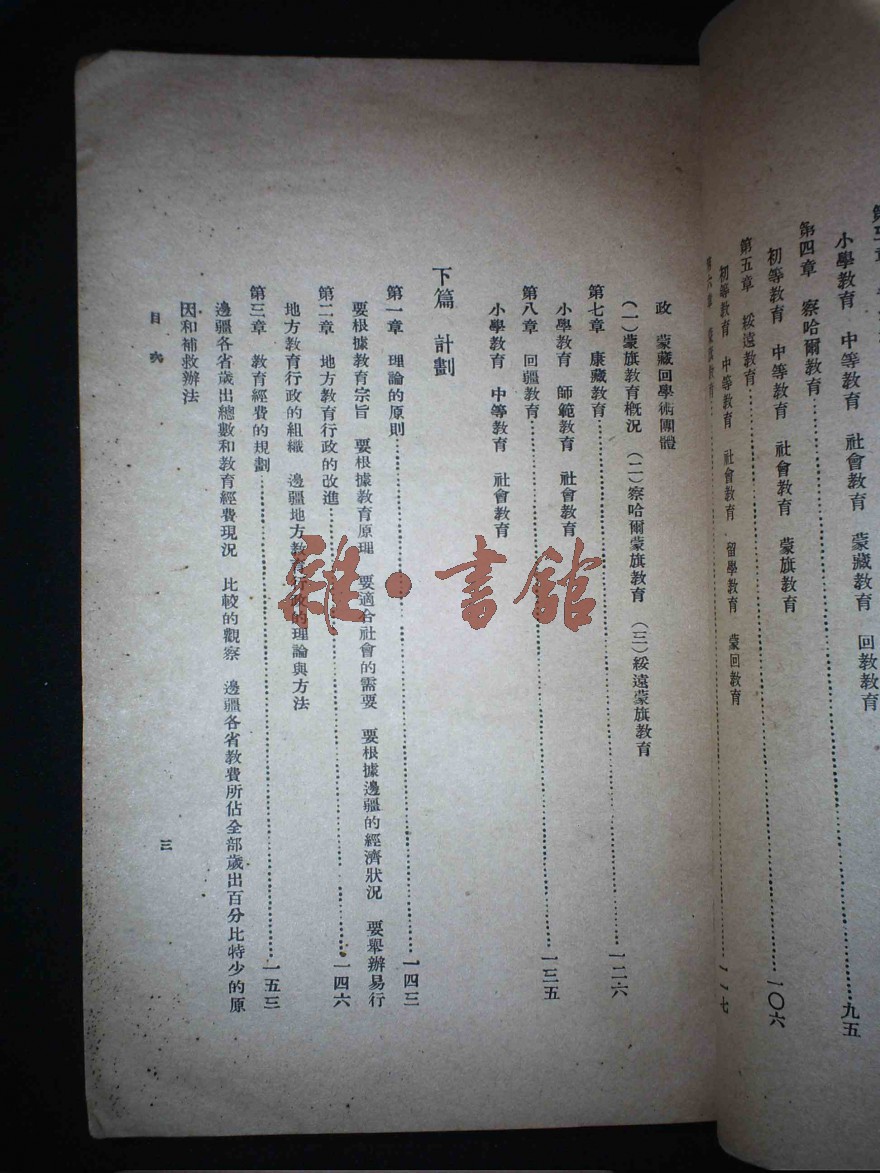 小學教育　中等教育　社會教育　蒙藏教育　回教教育
九五
第四章　察哈爾教育
一〇六
初等教育　中等教育　社會教育　蒙旗教育
第五章　綏遠教育
一一七
初等教育　中等教育　社會教育　留學教育　蒙回教育
政　蒙藏回學術團體
（一）蒙旗教育概況　（二）察哈爾蒙旗教育　（三）綏遠蒙旗教育
第七章　康藏教育……一二六
小學教育　師範教育　社會教育
第八章　回疆教育……一三五
小學教育　中等教育　社會教育
下篇　計劃
第一章　理論的原則……一四三
要根據教育宗旨　要根據教育原理　要適合社會的需要　要根據邊疆的經濟狀況　要舉辦易行
第二章　地方教育行政的改進……一四六
地方教育行政的組織　邊疆地方教育行政的理論與方法
第三章　教育經費的規劃……一五三
邊疆各省歲出總數和教育經費現況　比較的觀察　邊疆各省教費所佔全部歲出百分比特少的原
因和補救辦法
目次　三
雜·書館